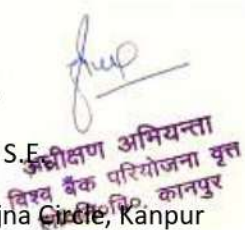 S.E.
अधीक्षण अभियन्ता
विश्व बैंक परियोजना वृत्त
कानपुर
jna Circle, Kanpur